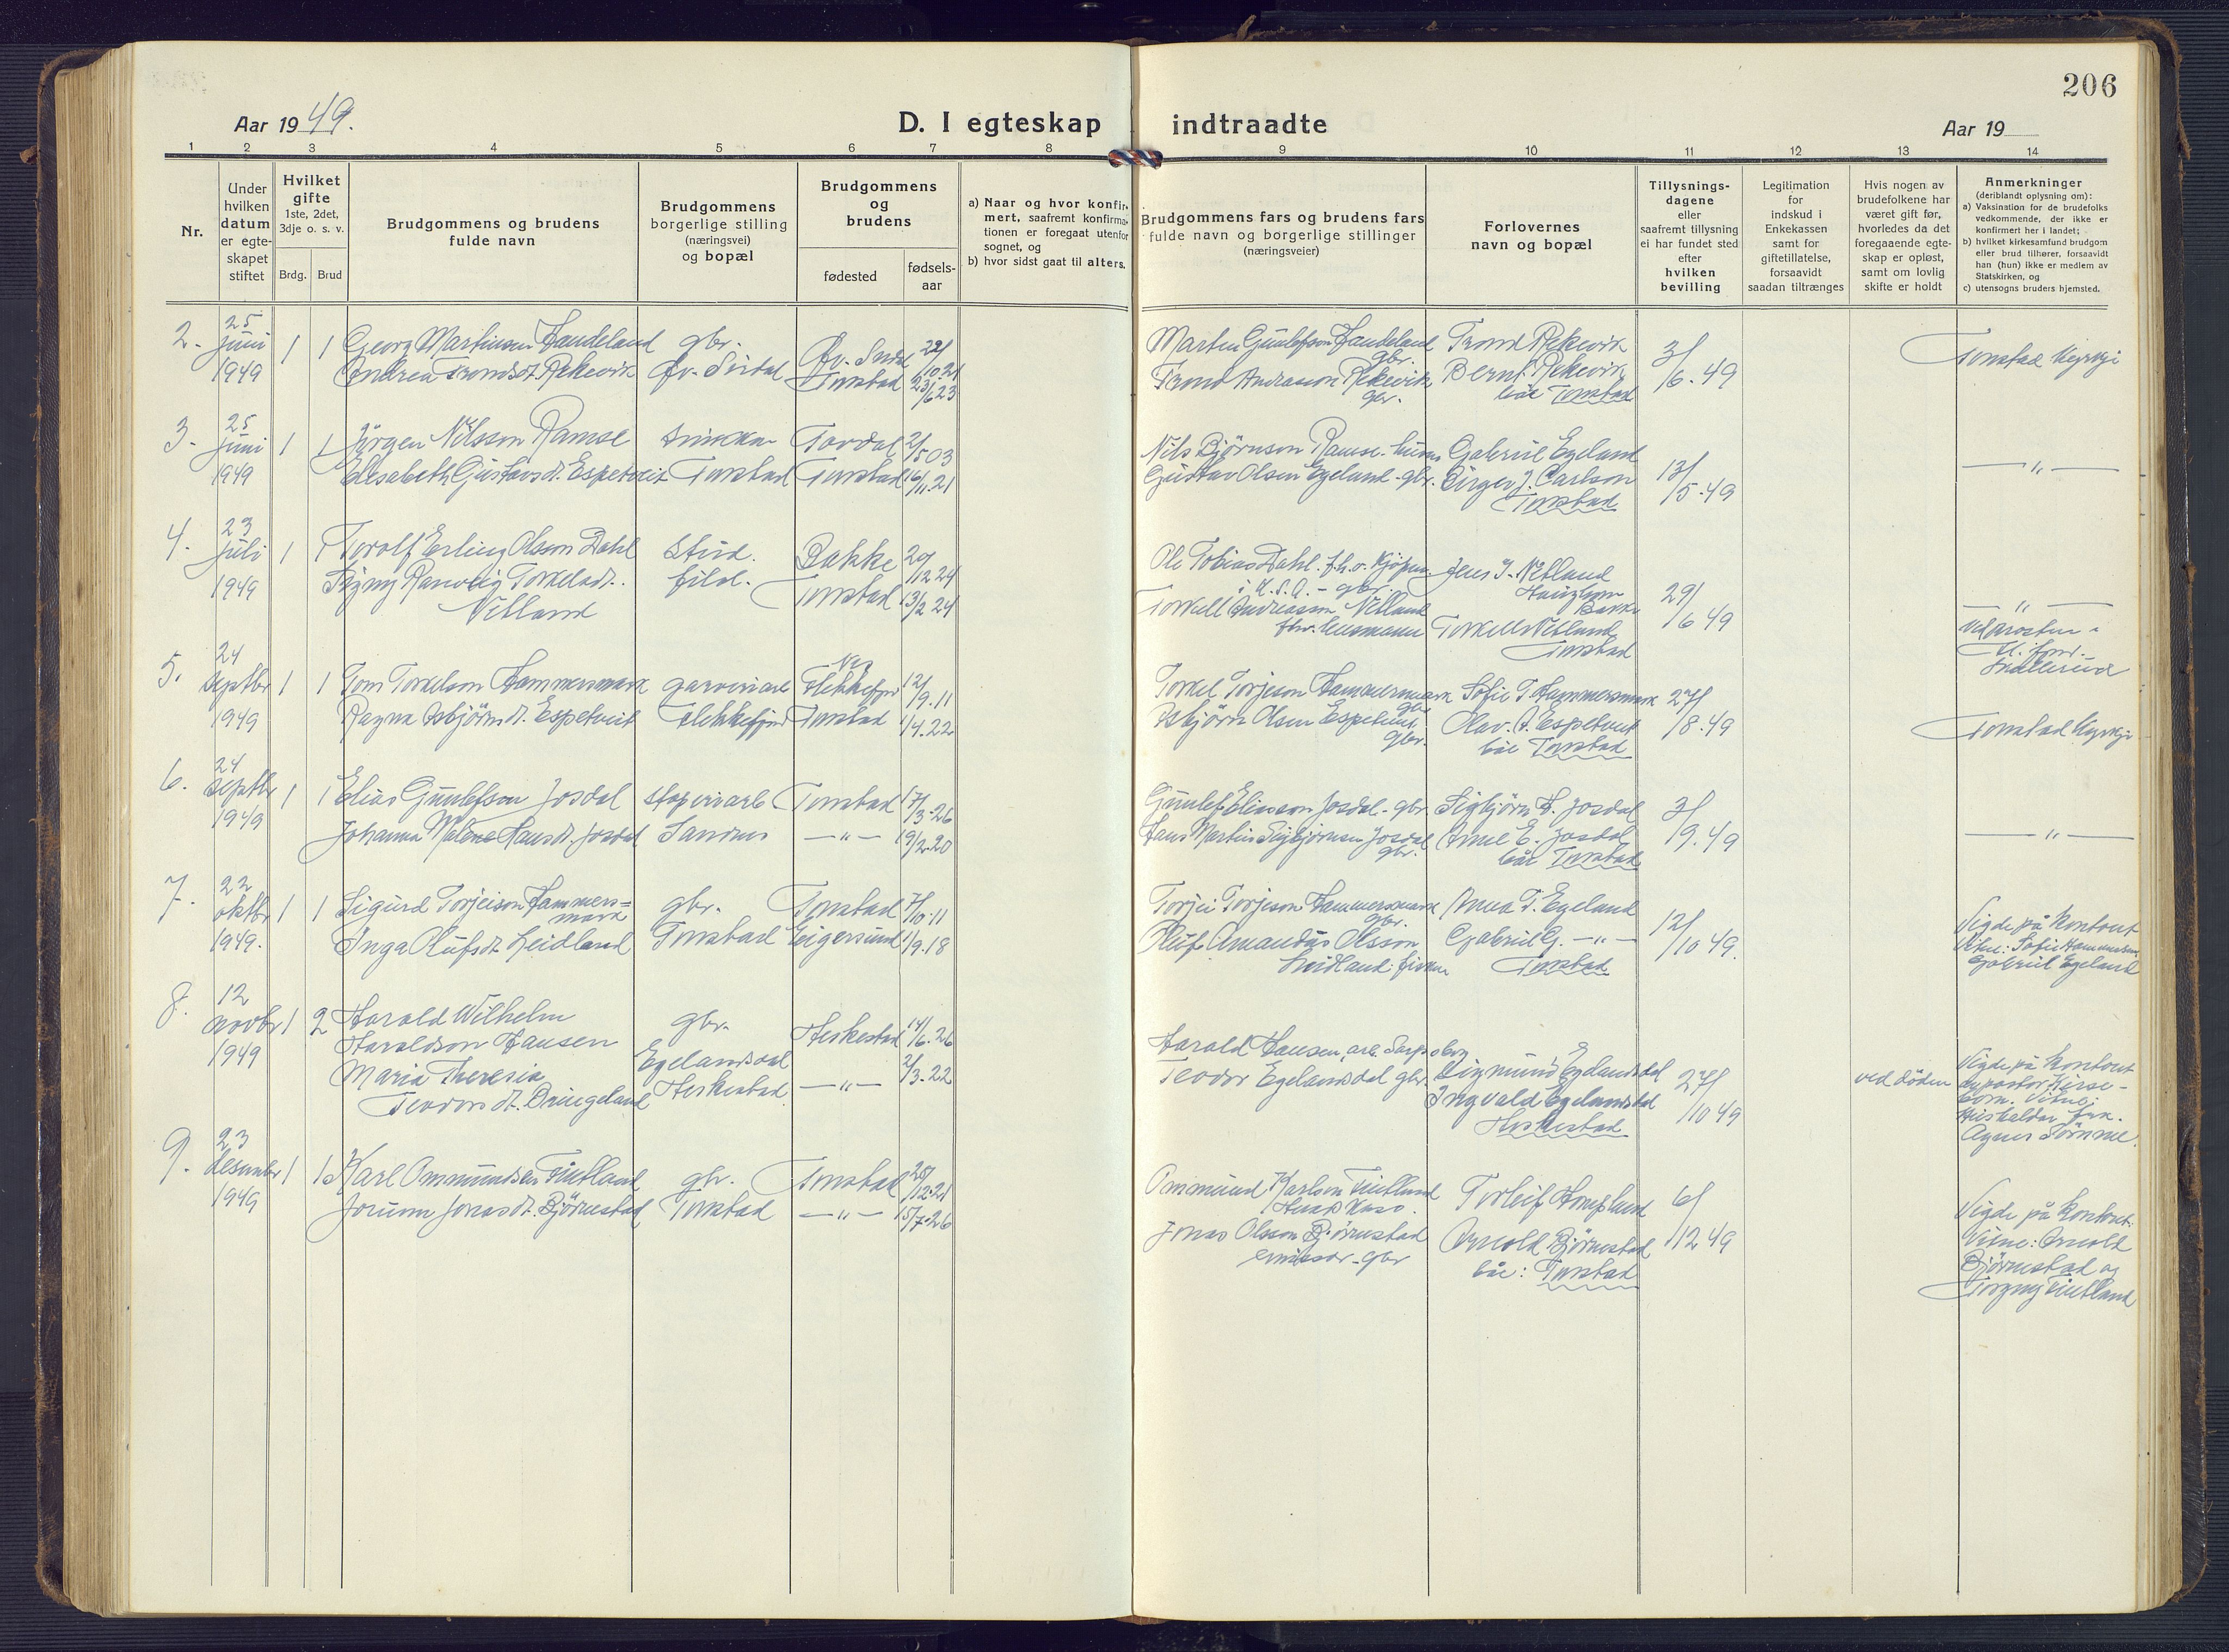 206
Aar 1949.
D. I egteskap indtraadte
Aar 19
1 2 3 4 5 6 7 8 9 10 11 12 13 14
Nr.
Under
hvilken
datum
er egte-
skapet
stiftet
Hvilket
gifte
1ste, 2det,
3dje o. s. v.
Brdg. Brud
Brudgommens og brudens
fulde navn
Brudgommens
borgerlige stilling
(næringsvei)
og bopæl
Brudgommens
og
brudens
fødested
fødsels-
aar
a) Naar og hvor konfir-
mert, saafremt konfirma-
tionen er foregaat utenfor
sognet, og
b) hvor sidst gaat til alters.
Brudgommens fars og brudens fars
fulde navn og borgerlige stillinger
(næringsveier)
Forlovernes
navn og bopæl
Tillysnings-
dagene
eller
saafremt tillysning
ei har fundet sted
efter
hvilken
bevilling
Legitimation
for
indskud i
Enkekassen
samt for
giftetillatelse,
forsaavidt
saadan tiltrænges
Hvis nogen av
brudefolkene har
været gift før,
hvorledes da det
foregaaende egte-
skap er opløst,
samt om lovlig
skifte er holdt
Anmerkninger
(deriblandt oplysning om):
a) Vaksination for de brudefolks
vedkommende, der ikke er
konfirmert her i landet;
b) hvilket kirkesamfund brudgom
eller brud tilhører, forsaavidt
han (hun) ikke er medlem av
Statskirken, og
c) utensogns bruders hjemsted.
2. 25 juni 1949 1 1
Georg Martinsen Haudeland
Andrea Trondsdt. Rekevik
gbr.
Øv. Sirdal
Øv. Sirdal
Tonstad
23/6 23
Martin Gunlefsen Haudeland
gbr.
Trond Andreassen Rekevik
gbr.
Trond Rekevik
Bernt Rekevik
båe Tonstad
3/6. 49
Tonstad kyrkje
3. 25 juni 1949 1 1
Jörgen Nilsson Ramse
Elisabeth Gustavsdt. Espetveit
Tonstad
Tovdal
Tonstad
2/5 03
16/11. 21
Nils Björnson Ramse
Gustav Olsen Egeland - gbr.
Gabriel Egeland
Birger J. Carlson
Tonstad
13/5. 49
— " —
4. 23 juli 1949 1 1
Torolf Erling Olsson Dahl
Signy Ranveig Torkelsdt.
Netland
stud.
filol.
Bakke
Tonstad
20/12 24
13/2 24
Ole Tobias Dahl
i U.S.A. - gbr.
Torkell Andreassen Netland
Jens J. Netland
Torkell Netland
Tonstad
29/6 49
— " —
5. 24 septbr 1949 1 1
Tom Torkelson Hammersmark
Ragna Asbjörnsdt. Espetveit
garveriarb
Flekkefjord
Nes
Flekkefjord
Tonstad
12/9. 11
1/4. 22
Torkel Torjeson Hammersmark
gbr.
Asbjörn Olsen Espetveit
gbr.
Sofie T. Hammersmark
Olav A. Espetveit
båe Tonstad
27/8. 49
Tonstad kyrkje
6. 24 septbr 1949 1 1
Elias Gunlefson Josdal
Johanna Malene Hansdt. Josdal
støperiarb
Sandnes
Tonstad
— " —
17/3. 26
19/2. 20
Gunlef Eliasson Josdal - gbr.
Hans Martin Sigbjörnsen Josdal
gbr.
Sigbjörn H. Josdal
Arne E. Josdal
båe Tonstad
3/9. 49
— " —
7. 22 oktbr 1949. 1 1
Sigurd Torjeison Hammers=
mark
Inga Olufsdt. Leidland
gbr.
Tonstad
Tonstad
Eigersund
7/10. 11
1/9. 18
Torjei Torjeson Hammersmark
gbr.
Oluf Amandus Olsson
Leidland
Anna T. Egeland
Gabriel G. — " —
Tonstad
12/10 49.
Vigde på kontoret
Vitne: Sofie Hammersm.
Gabriel Egeland
8. 12 novbr 1949 1 2
Harald Wilhelm
Haraldson Hansen
Maria Theresia
Teodorsdt. Bringeland
gbr.
Egelandsdal
Heskestad
Heskestad
— " —
14/6. 26
2/3. 22
Harald Hansen, arb. Sarpsborg
Teodor Egelandsdal gbr.
Sigmund Egelandsdal
Ingvald Egelandsdal
Heskestad
27/10 49
ved döden
Vigde på kontoret
av pastor Kirse-
bom. Vitne:
Hushaldar frk.
Agnes Sömme.
9. 23 desember 1949 1 1
Karl Ommundsen Fintland
Jorunn Jonasdt. Björnestad
gbr.
Tonstad
Tonstad
— " —
15/7. 26
Ommund Karlson Fintland
Jonas Olsson Björnestad
emissær - gbr
Torleif Hompland
Arnold Björnestad
båe: Tonstad
6/12 49
Vigde på kontoret.
Vitne: Arnold
Björnestad og
Torgny Fintland